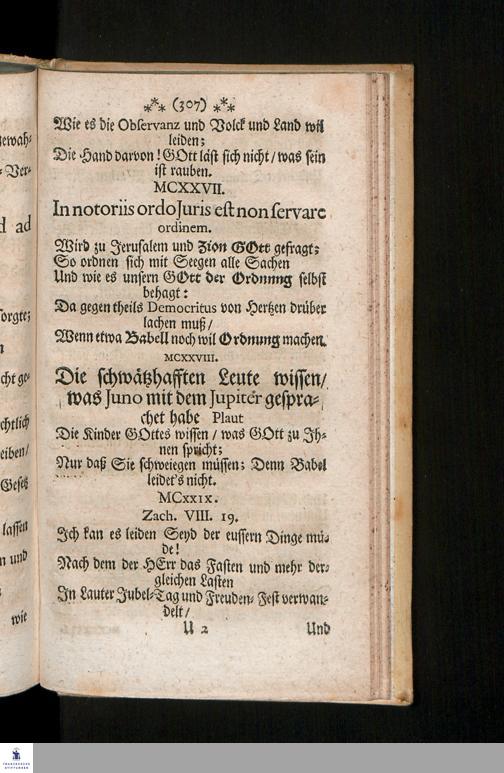 ⁂ (307) ⁂
Wie es die Observanz und Volck und Land wil
leiden;
Die Hand darvon! GOtt läst sich nicht / was sein
ist rauben.
MCXXVII.
In notoriis ordo Juris est non servare
ordinem.
Wird zu Jerusalem und Zion GOtt gefragt;
So ordnen sich mit Seegen alle Sachen
Und wie es unsern GOtt der Ordnung selbst
behagt:
Da gegen theils Democritus von Hertzen drüber
lachen muß /
Wenn etwa Babell noch wil Ordnung machen.
MCXXVIII.
Die schwätzhafften Leute wissen /
was Juno mit dem Jupiter gespra-
chet habe Plaut
Die Kinder GOttes wissen / was GOtt zu Ih-
nen spricht;
Nur daß Sie schweiegen müssen; Denn Babel
leidet's nicht.
MCXXIX.
Zach. VIII. 19.
Ich kan es leiden Seyd der eussern Dinge mü-
de!
Nach dem der HErr das Fasten und mehr der-
gleichen Lasten
In Lauter Jubel-Tag und Freuden-Fest verwan-
delt /
U 2 Und
ewah-
Ver-
d ad
orgte;
n
cht ge-
chtlich
eiben /
Gesetz
lassen
n und
wie
FRANCKESCHE
STIFTUNGEN